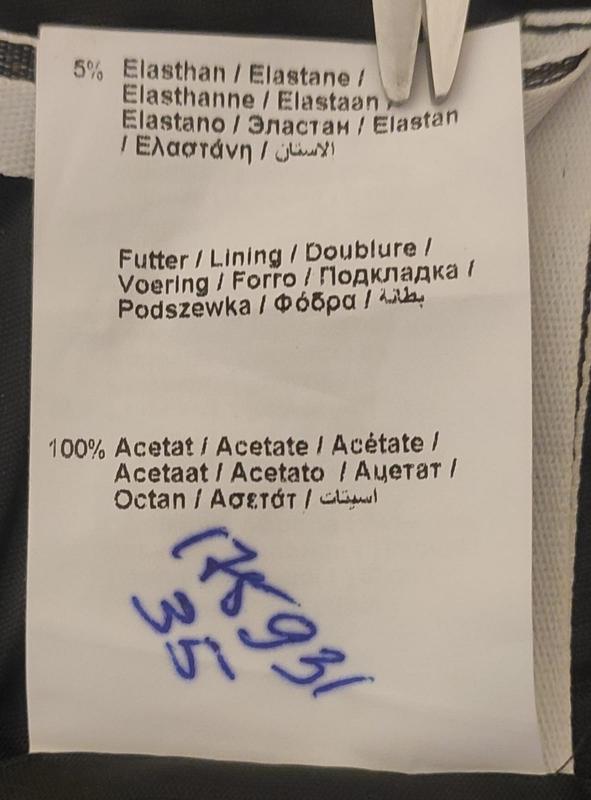 5% Elasthan / Elastane /
Elasthanne / Elastaan /
Elastano / Эластан / Elastan
/ Ελαστάνη / الاستان
Futter / Lining / Doublure /
Voering / Forro / Подкладка /
Podszewka / Φόδρα / بطانة
100% Acetat / Acetate / Acétate /
Acetaat / Acetato / Ацетат /
Octan / Ασετάτ / اسيتات